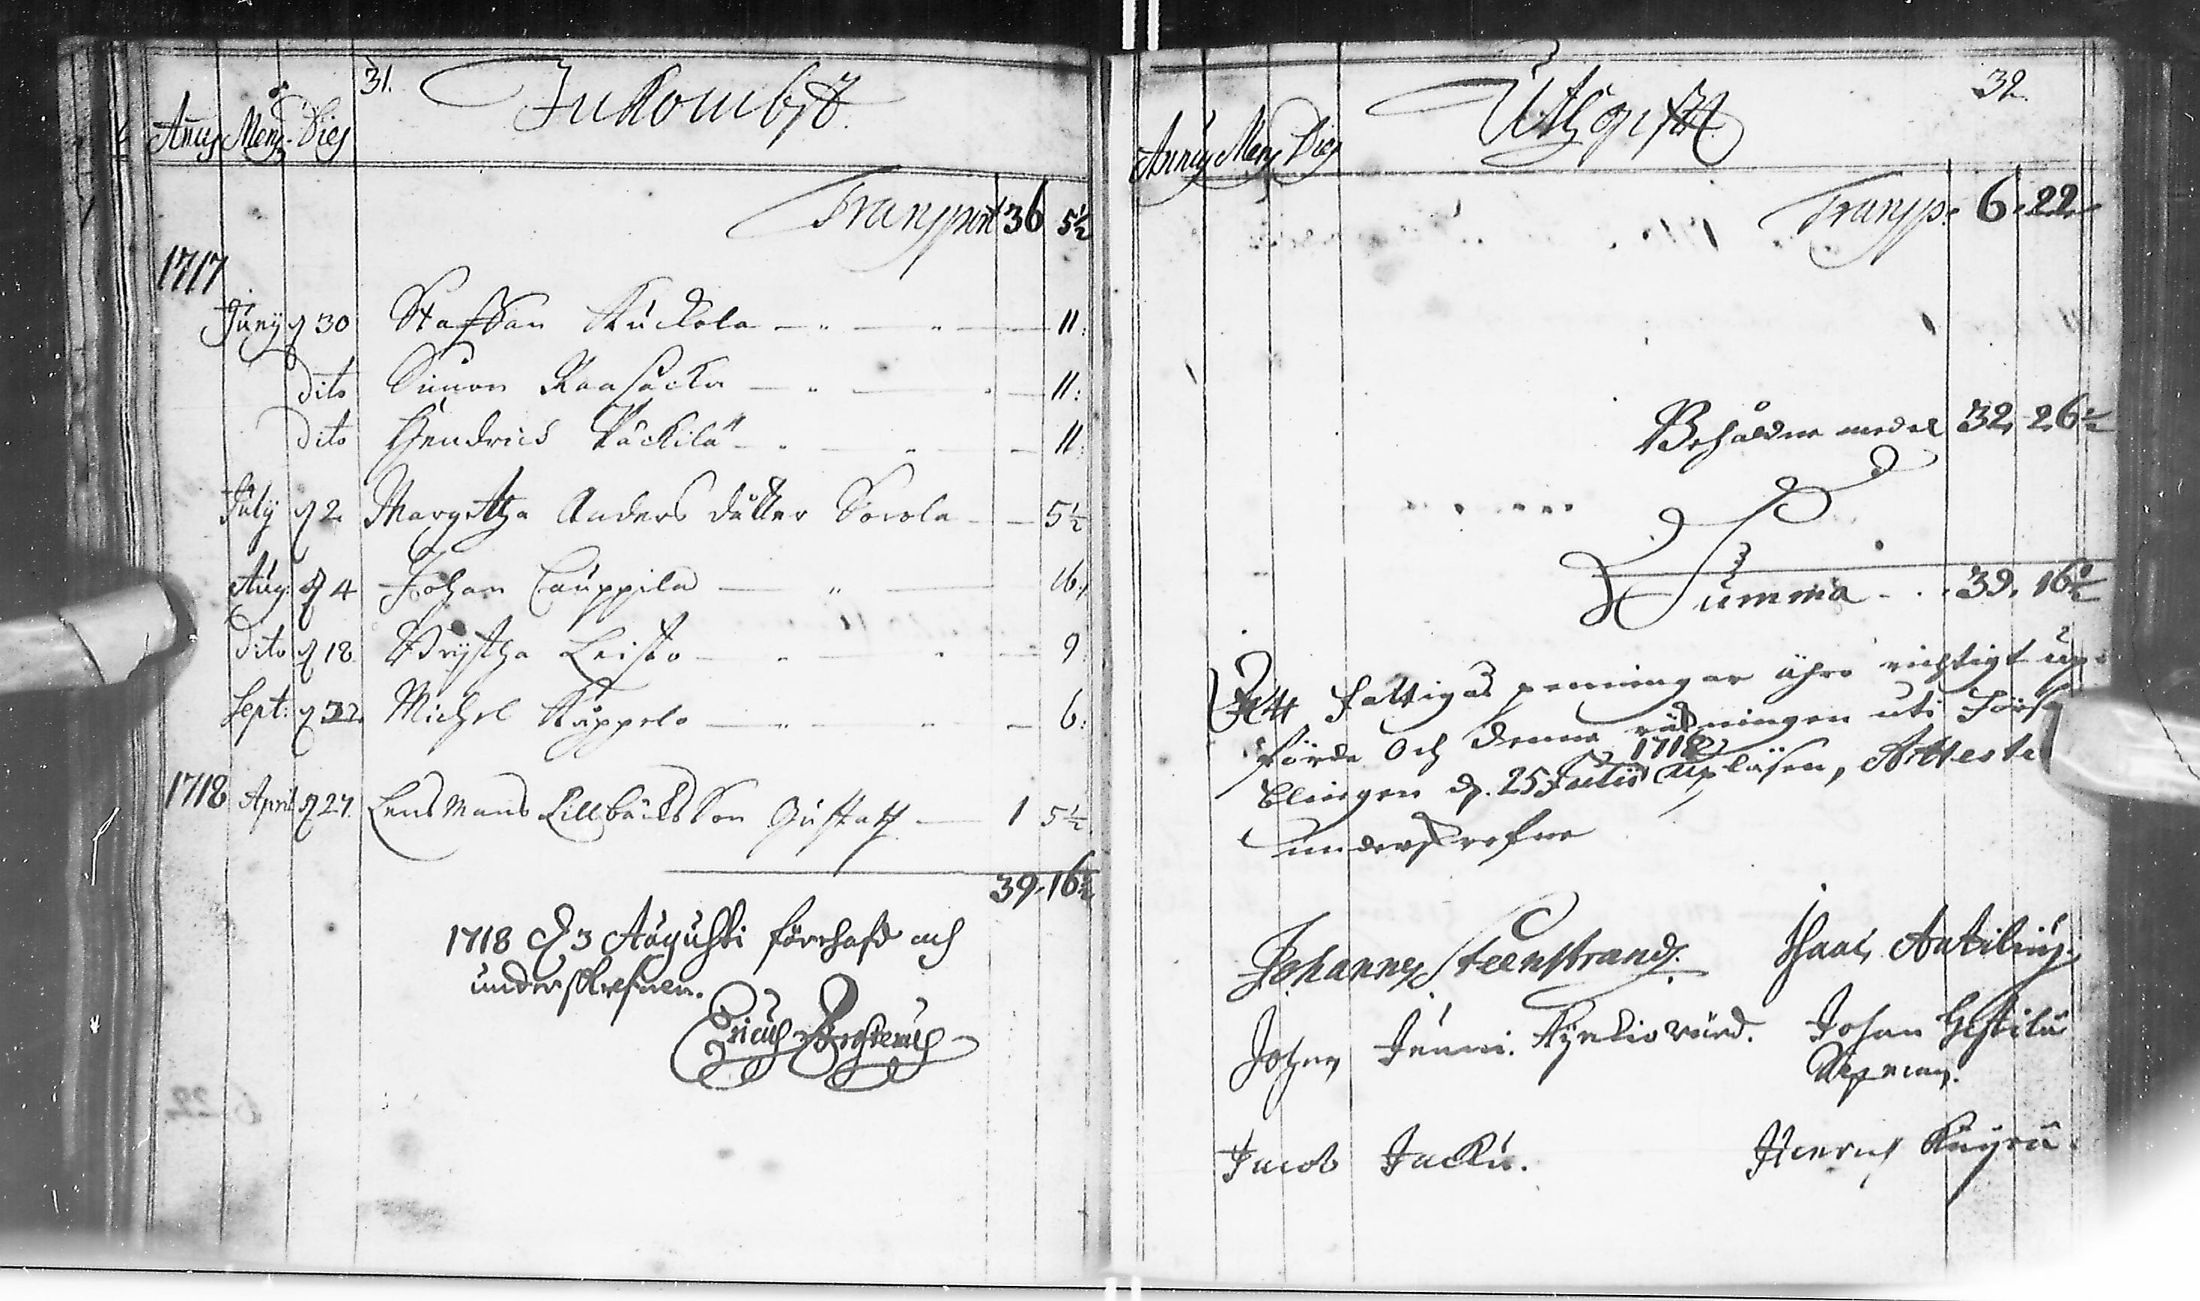 31. Inkombst
Anus Mens. Dies
Transport 36 5½
1717
Juny d 30 Staffan Kuckola 11:
dito Simon Kaasacka 11:
dito Hendrich Käckilä 11:
July d 2 Margetha Anders dåtter Sorola 5½
Aug: d 4 Johan Cauppila 16:
dito d 18 Brijtha Leisto 9:
Sept: d 22 Michel Kuppelo 6:
1718 April d 27. Lens Mans Lillbäcks Son Gustaff 1 5½
39. 16½
1718 d 3 Augusti förehafd och
underskrefven.
Ericus
32.
Utgifft
Annus Mens Dies
Transp. 6. 22.
Behåldne medel 32. 26½
Summa 39. 16½
Att Fattigas penningar ähro richtigt up-
förde Och denne räkningen uti
d. 25 Julii 1718 upläsen, Atteste
underskrefne
Johannes Steenstrand. Isaac Antilius.
Johan Junni. Kyrkiovärd. Johan
Jacob Jacku. Henrich